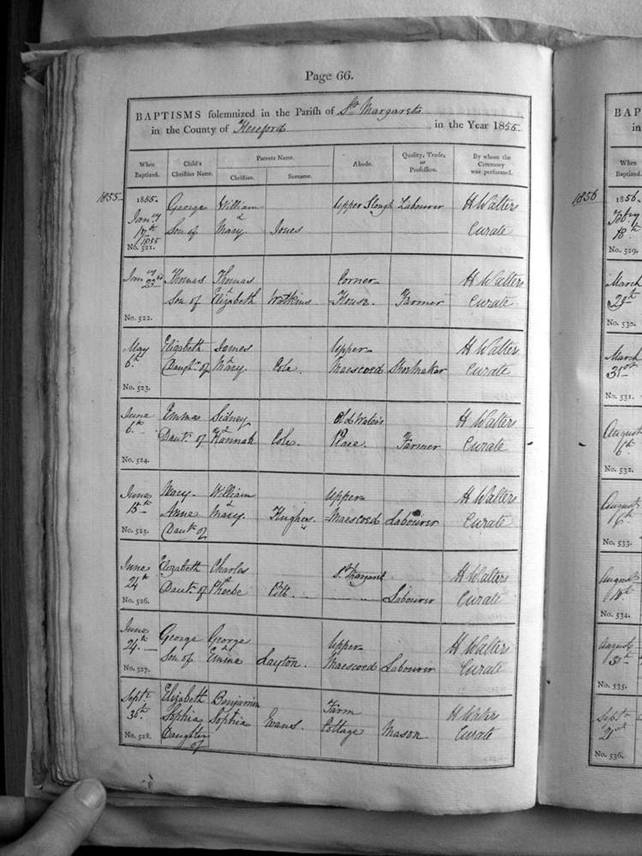 Page 66.
BAPTISMS solemnized in the Parish of St. Margarets
in the County of Hereford in the Year 1855.
When Baptized. Child's Christian Name. Parents Name. Abode. Quality, Trade, or Profession. By whom the Ceremony was performed.
Christian. Surname.
1855 1855. George William Upper Slough Labourer H Walters
Jany 17th 1855 Son of & Mary Jones Curate
No. 521.
Jany Thomas Thomas Corner H Walters
Son of & Elizabeth Watkins House. Farmer Curate
No. 522.
May Elizabeth James Upper H Walters
6th Daughtr. of & Mary Cole Maescoed Shoemaker Curate
No. 523.
June Emmas Sidney H Walters
6th Dautr. of & Hannah Cole Place. Farmer Curate
No. 524.
June Mary William Upper H Walters
15th Anne & Mary. Hughes. Maescoed Labourer Curate
No. 525. Dautr of
June Elizabeth Charles St Margarets H Walters
24th Dautr. of & Phoebe Labourer Curate
No. 526.
June George George Upper H Walters
24. Son of & Emma Layton. Maescoed Labourer Curate
No. 527.
Septr. Elizabeth Benjamin Farm H Walters
30th. Sophia Sophia Evans. Cottage Mason. Curate
No. 528. Daughter of
BAP
in
When Baptized.
1856 1856.
Feby
18th
No. 529.
March
No. 530.
March
31st
No. 531.
August
No. 532.
August
No. 533.
August
No. 534.
August
No. 535.
Septr
21st
No. 536.